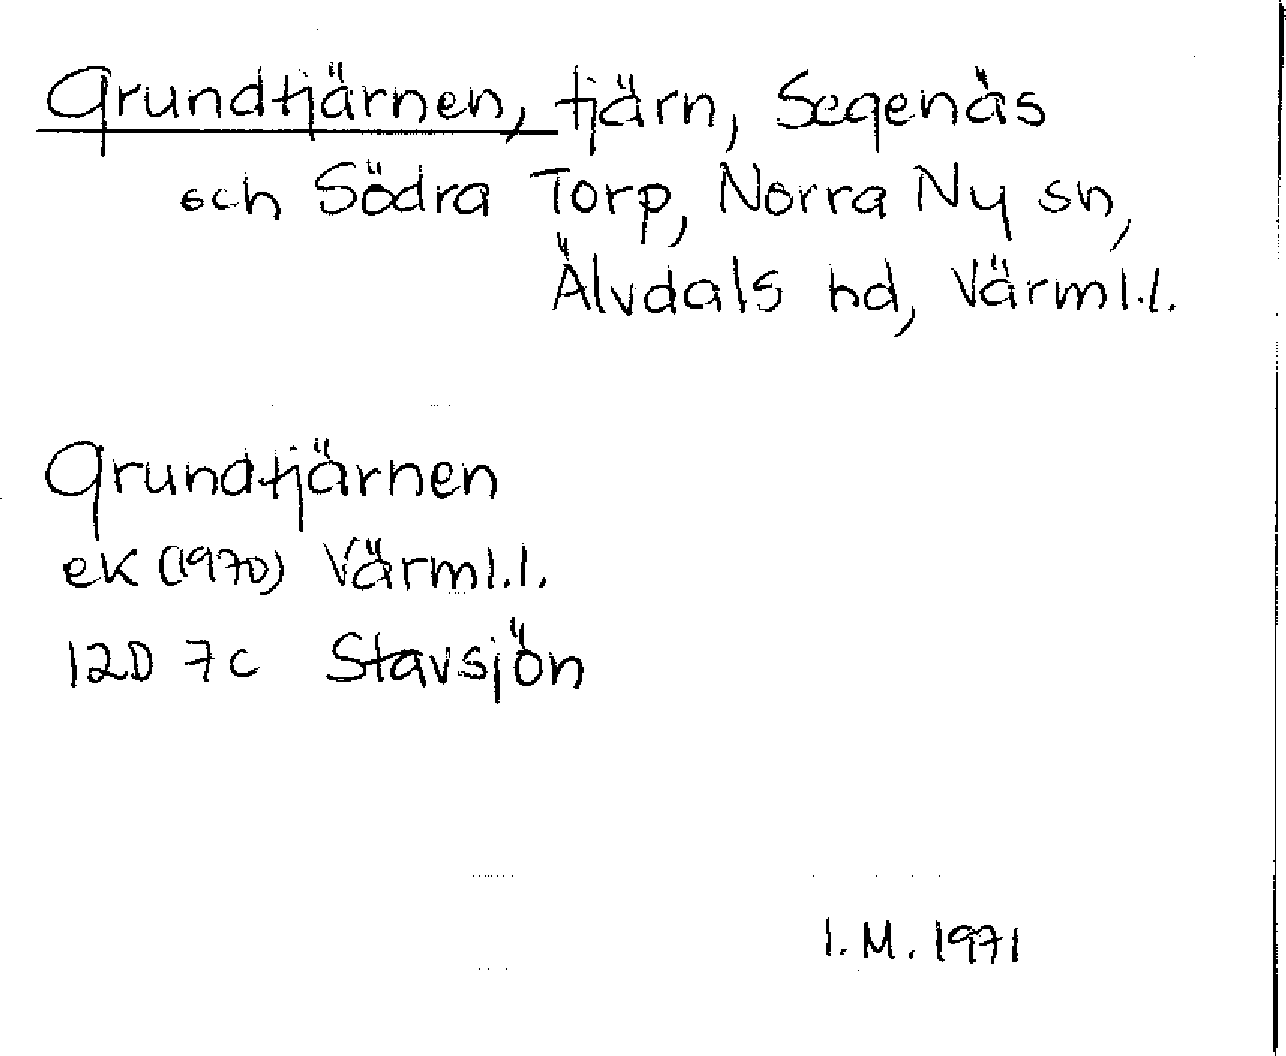 Grundtjärnen, tjärn, Segenäs
och Södra Torp, Norra Ny sn,
Älvdals hd, Värml.l.
Grundtjärnen
ek (1970) Värml.l.
12D 7c Stavsjön
I.M. 1971